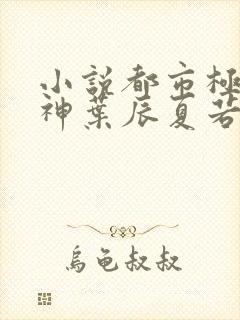 小説都市極
神葉辰夏若
烏龜叔叔